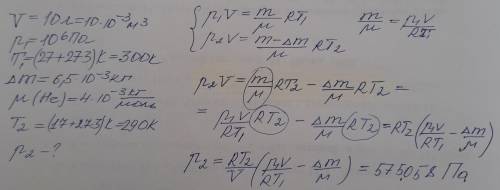 V = 10 л = 10·10⁻³ м³
p₁ = 10⁶ Па
T₁ = (27+273)К = 300К
Δm = 6,5·10⁻³ кг
μ(He) = 4·10⁻³ кг/моль
T₂ = (17+273)К = 290К
p₂ - ?
{ p₁V = m/μ RT₁
p₂V = (m-Δm)/μ RT₂
m/μ = p₁V/RT₁
p₂V = m/μ RT₂ - Δm/μ RT₂ =
= p₁V/RT₁ RT₂ - Δm/μ RT₂ = RT₂(p₁V/RT₁ - Δm/μ)
p₂ = RT₂/V (p₁V/RT₁ - Δm/μ) = 575058 Па